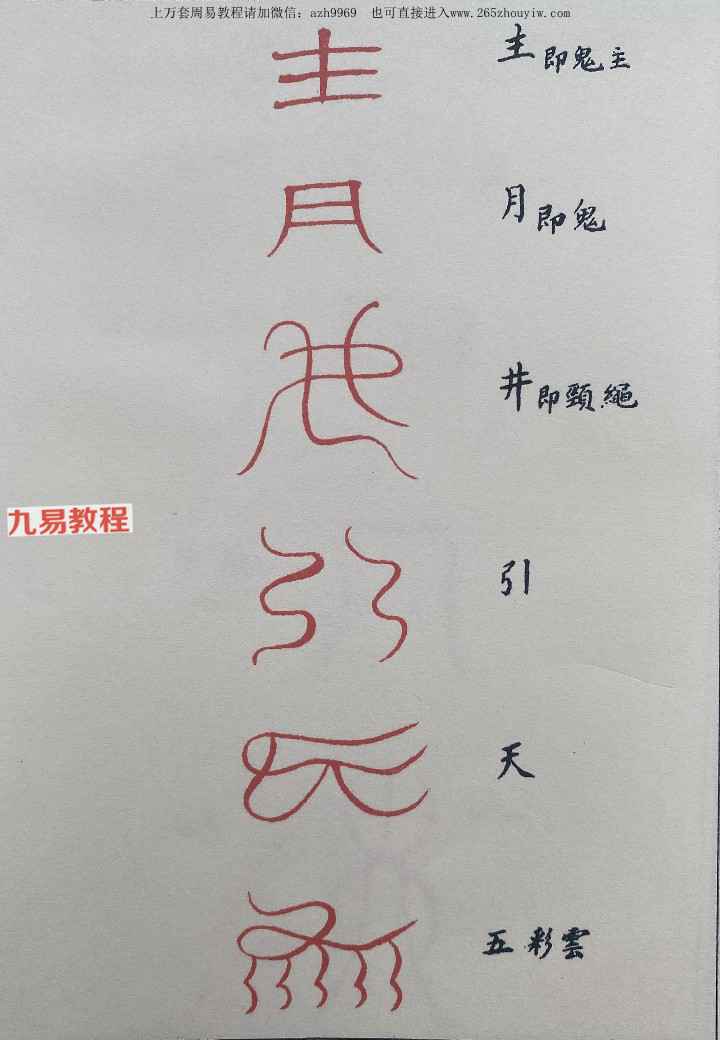 上万套周易教程请加微信：azh9969 也可直接进入www.265zhouyiw.com
主即鬼主
月即鬼
井即頸繩
九易教程
引
天
五彩雲